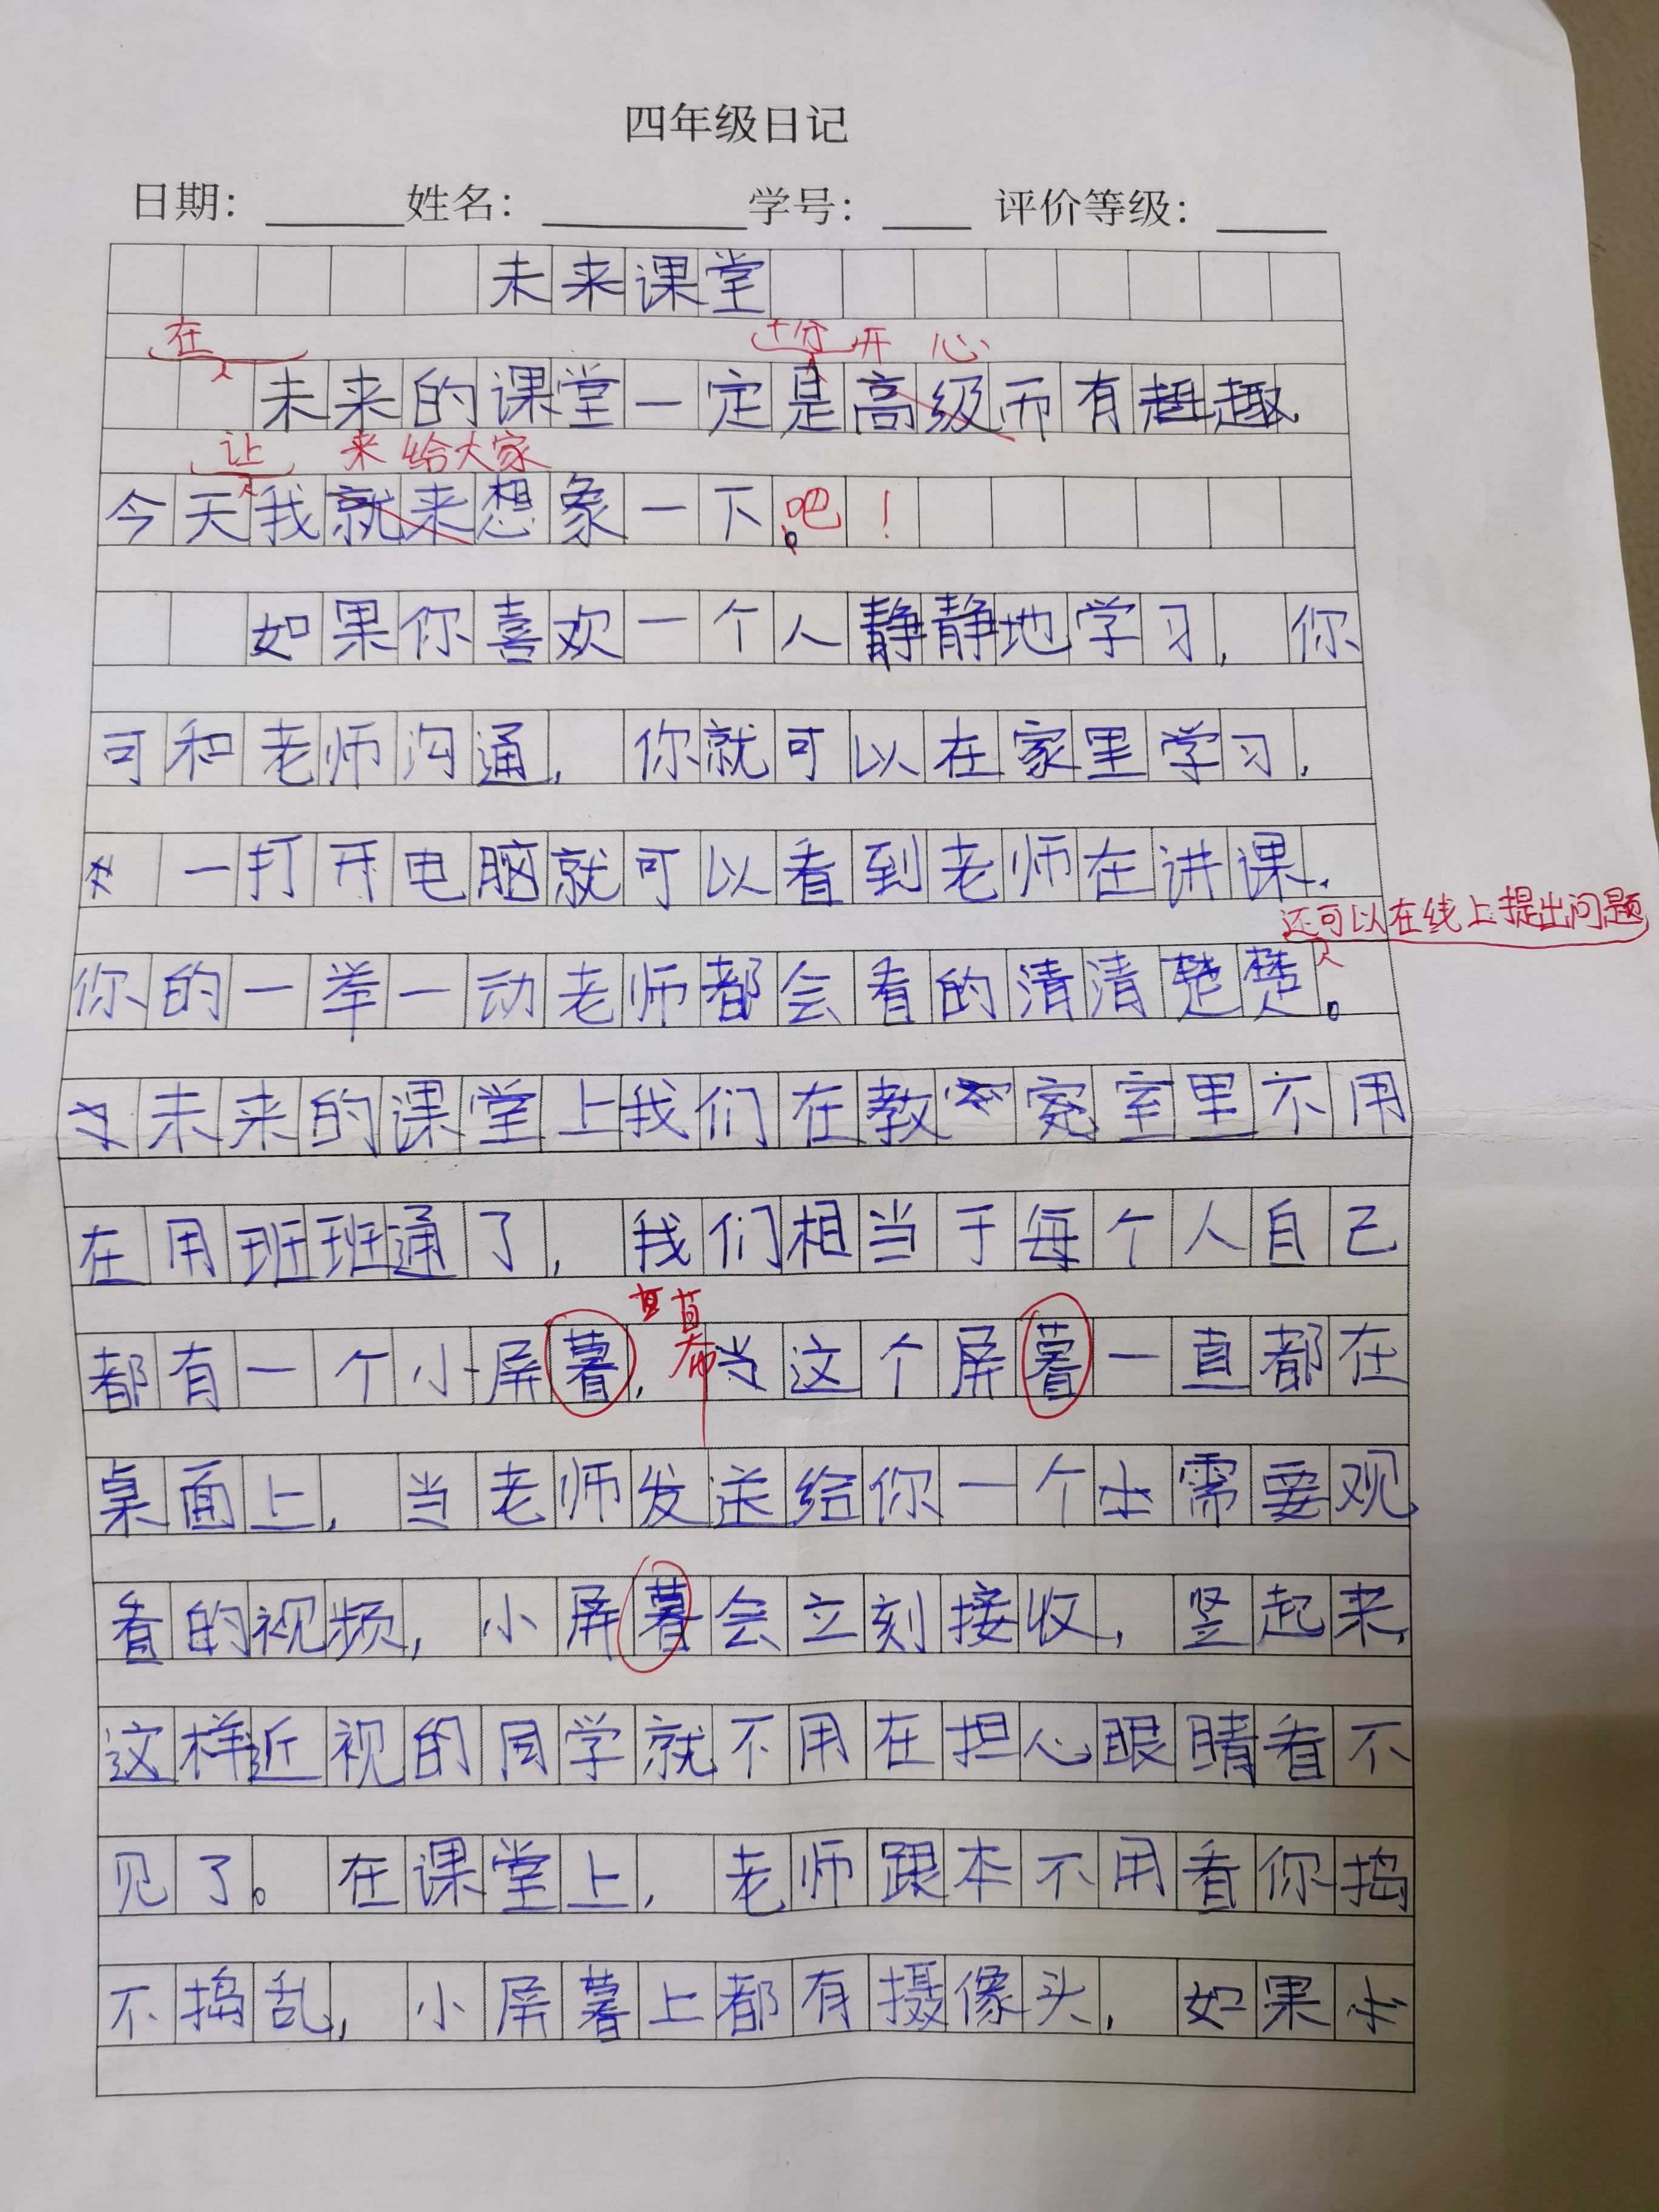 四年级日记
日期： 姓名： 学号： 评价等级：
未来课堂
在 十分开心
未来的课堂一定是高级而有趣
让 来给大家
今天我就来想象一下。吧！
如果你喜欢一个人静静地学习，你
可和老师沟通，你就可以在家里学习，
一打开电脑就可以看到老师在讲课，
还可以在线上提出问题
你的一举一动老师都会看的清清楚楚。
未来的课堂上我们在教室里不用
在用班班通了，我们相当于每个人自己
幕
都有一个小屏暮，当这个屏暮一直都在
桌面上，当老师发送给你一个需要观
看的视频，小屏暮会立刻接收，竖起来，
这样近视的同学就不用在担心眼睛看不
见了。在课堂上，老师跟本不用看你捣
不捣乱，小屏暮上都有摄像头，如果